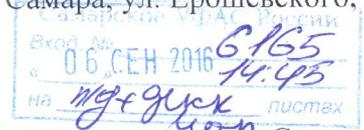 Самара, ул. Ерошевского,
Самарское УФАС России
Вход. № 6165
« 06 » СЕН 2016 14:45
на листах